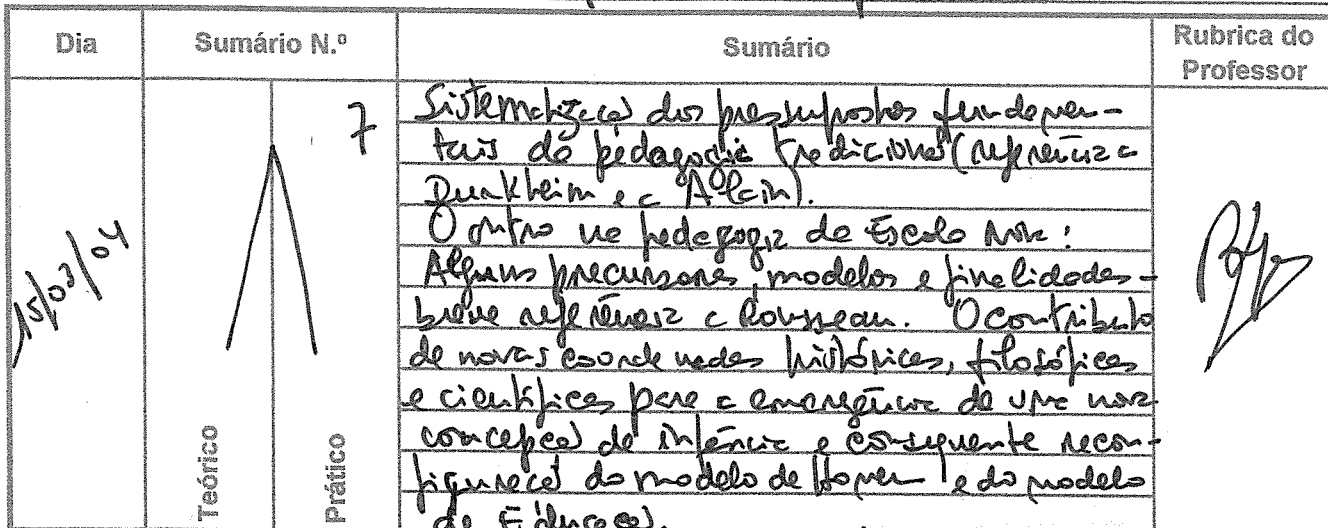 Dia
Sumário N.º
Sumário
Rubrica do
Professor
15/03/04
7
Teórico
Prático
Sistematização dos pressupostos fundamen-
tais da pedagogia tradicional (referência a
Durkheim e a Alain).
O outro na pedagogia da Escola Nova:
Alguns precursores, modelos e finalidades -
breve referência a Rousseau. O contributo
de novas coordenadas históricas, filosóficas
e científicas para a emergência de uma nova
concepção de infância e consequente recon-
figuração do modelo de Homem e do modelo
de Educação.